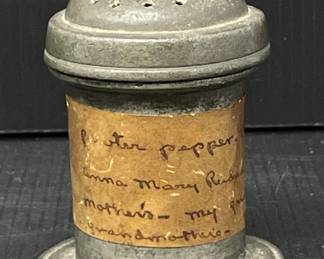 pewter pepper.
Anna Mary
Mother's - my
grandmother's -